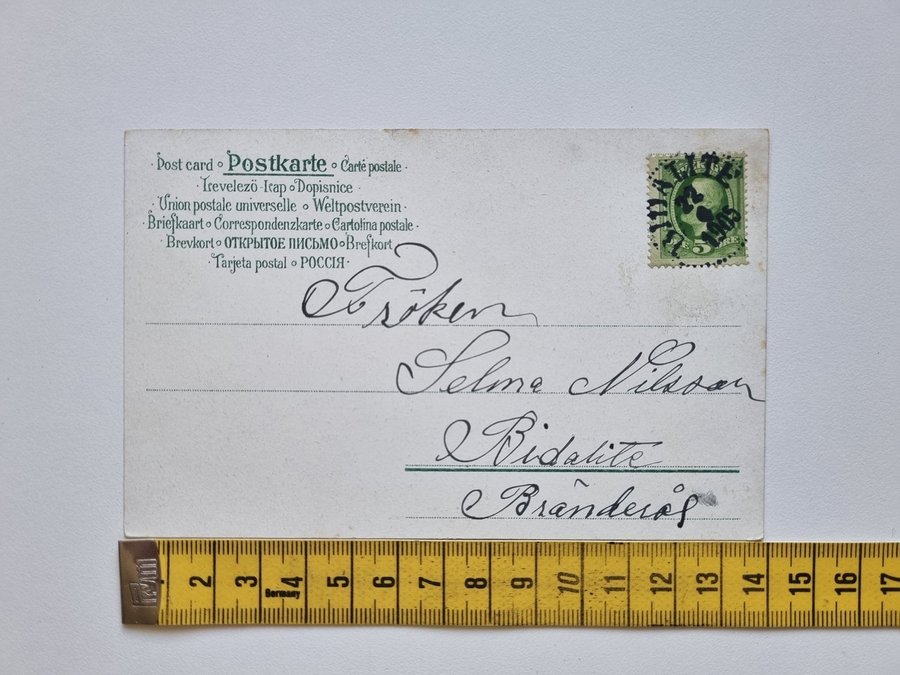 Post card ∘ Postkarte ∘ Carte postale
Levelező-Lap ∘ Dopisnice
Union postale universelle ∘ Weltpostverein
Briefkaart ∘ Correspondenzkarte ∘ Cartolina postale
Brevkort ∘ ОТКРЫТОЕ ПИСЬМО ∘ Brefkort
Tarjeta postal ∘ РОССІЯ
BIDALITE
22
1905
5 ÖRE
Fröken
Selma Nilsson
Bidalite
Bränderås
2 3 4 5 6 7 8 9 10 11 12 13 14 15 16 17
Germany